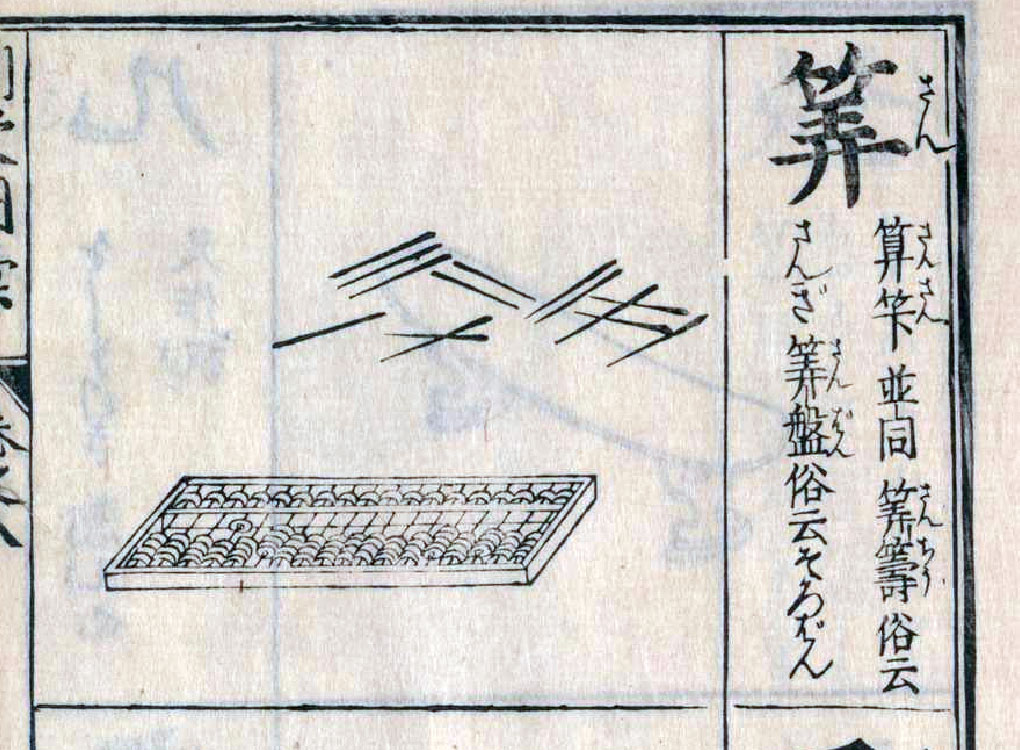 筭
さん
算竿並同筭籌俗云
さんさん
さんちう
さんぎ筭盤俗云そろばん
さんばん